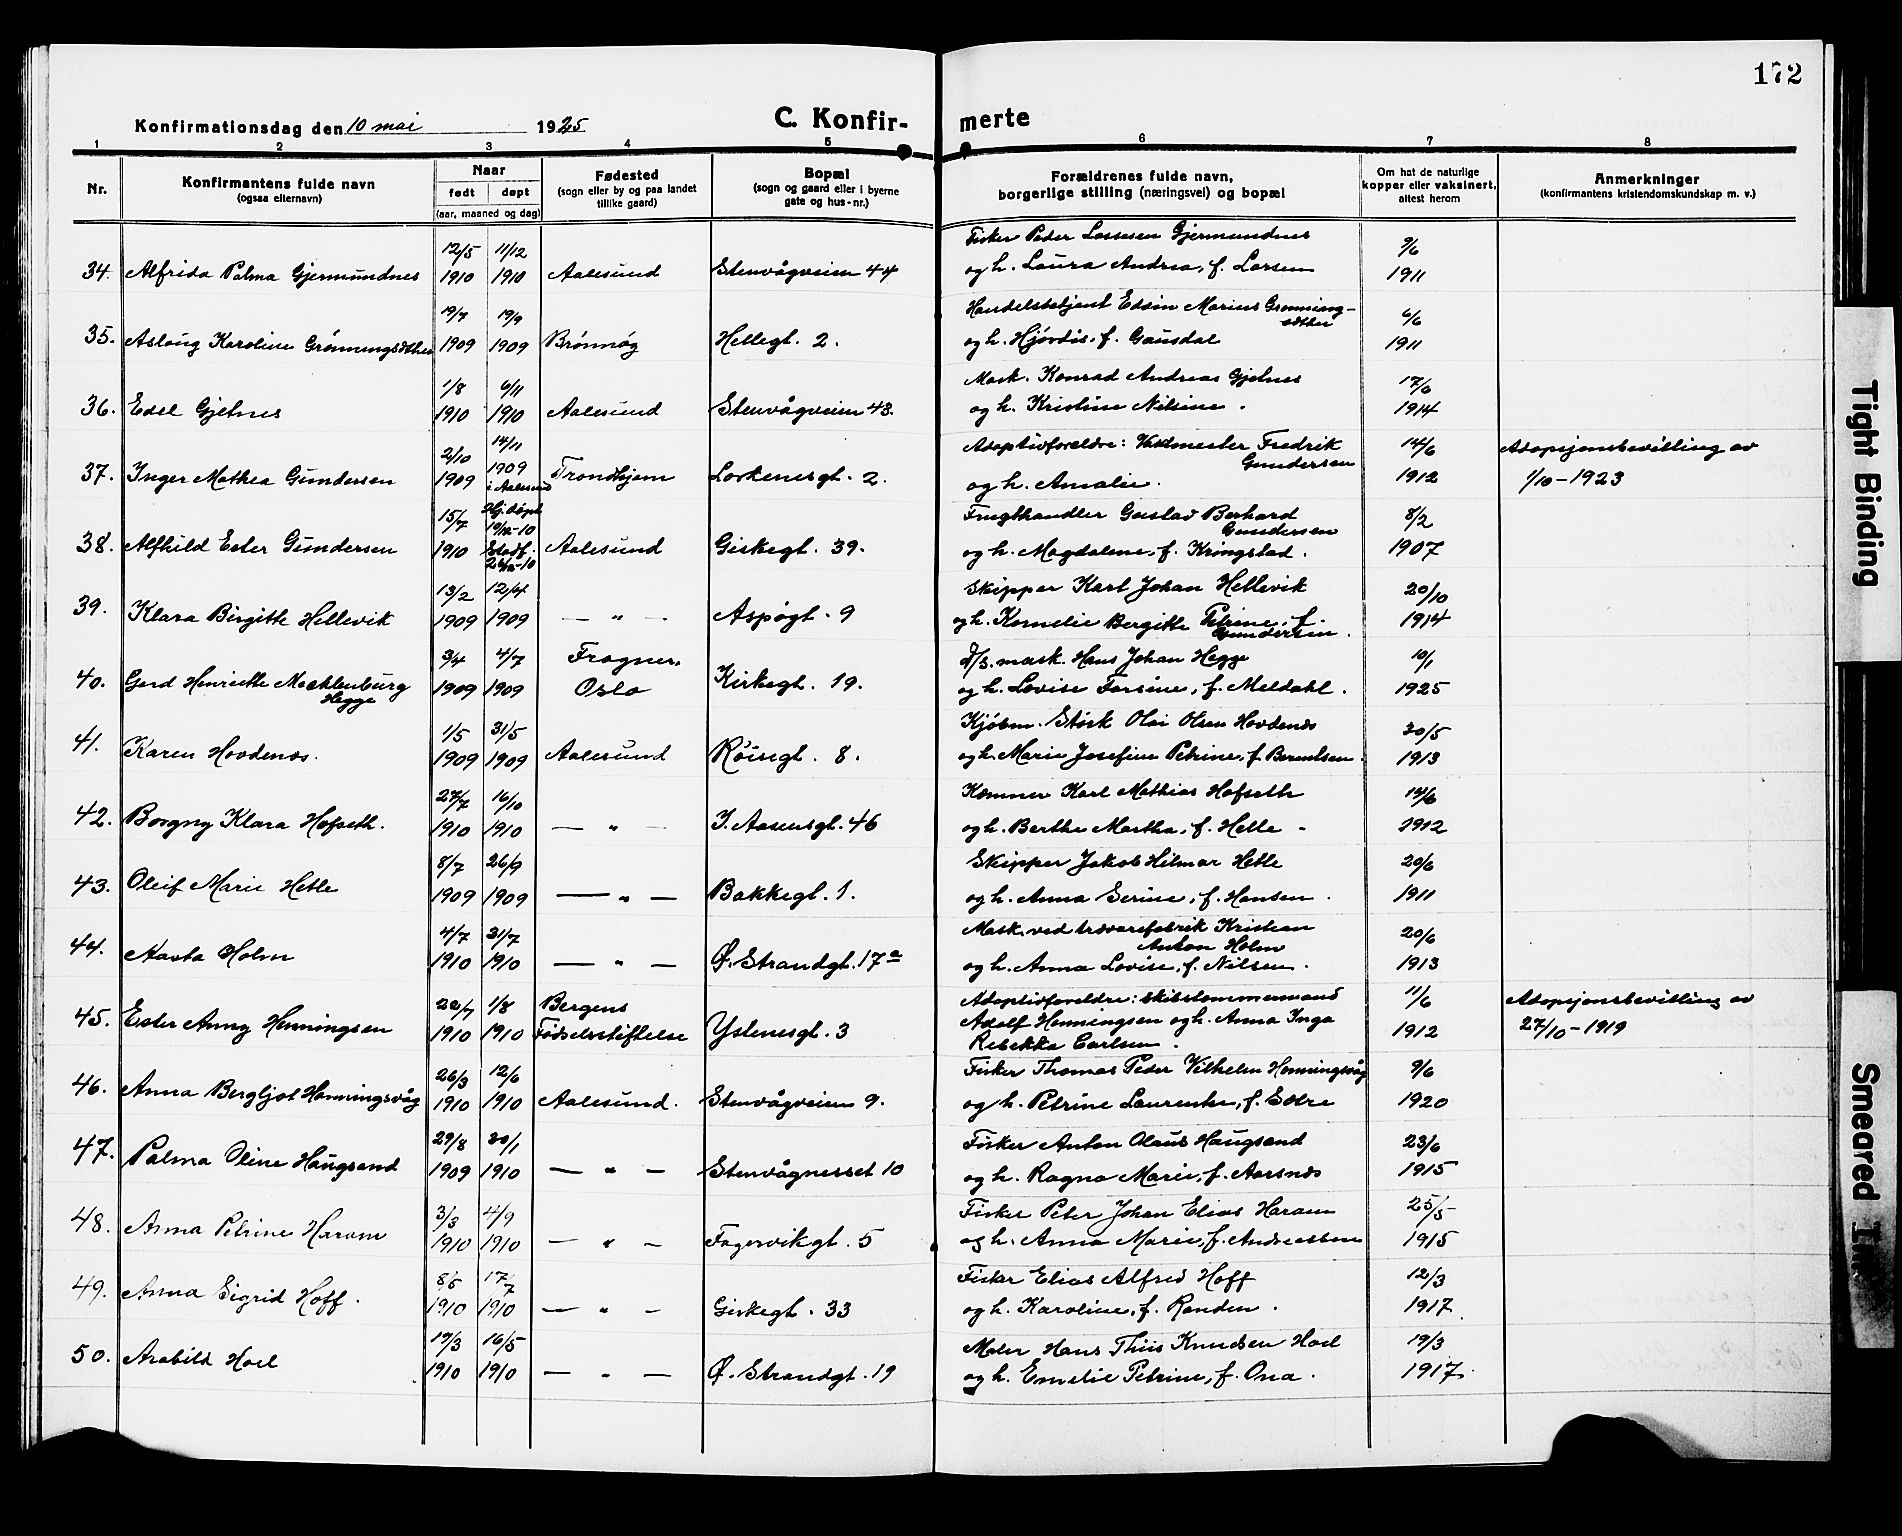 172
Konfirmationsdag den 10 mai 1925
C. Konfirmerte
1 2 3 4 5 6 7 8
Nr.
Konfirmantens fulde navn
(ogsaa efternavn)
Naar
født døpt
(aar, maaned og dag)
Fødested
(sogn eller by og paa landet
tillike gaard)
Bopæl
(sogn og gaard eller i byerne
gate og hus-nr.)
Forældrenes fulde navn,
borgerlige stilling (næringsvei) og bopæl
Om hat de naturlige
kopper eller vaksinert,
attest herom
Anmerkninger
(konfirmantens kristendomskundskap m. v.)
12/5 11/12 Fisker Peder Lassesen Gjermundnes 9/6
34. Alfrida Palma Gjermundnes 1910 1910 Aalesund Stenvågveien 44 og h. Laura Andrea, f. Larsen 1911
19/7 19/9 Handelsbetjent Edvin Marius Grønningsæther 6/6
35. Aslaug Karoline Grønningsæther 1909 1909 Brønnøy Hellegt. 2. og h. Hjørdis, f. Gausdal 1911
1/8 6/11 Mask. Konrad Andreas Gjelnes 17/6
36. Edel Gjelnes 1910 1910 Aalesund Stenvågveien 43. og h. Kristine Nilsine. 1914
2/10 14/11 Adoptivforeldre: Vaktmester Fredrik Gundersen 14/6 Adopsjonsbevilling av
37. Inger Mathea Gundersen 1909 1909 i Aalesund Trondhjem Lorkenesgt. 2. og h. Amalie. 1912 1/10-1923
15/7 Hj. døpt 10/12-10 Frugthandler Gustav Berhard Gundersen 8/2
38. Alfhild Ester Gundersen 1910 Stadf. 26/12-10 Aalesund Giskegt. 39. og h. Magdalene, f. Kringstad. 1907
13/2 12/4 Skipper Karl Johan Hellevik 20/10
39. Klara Birgitte Hellevik 1909 1909 — " — Aspøgt. 9 og h. Kornelie Bergitte Petrine, f. Gundersen. 1914
3/4 4/7 Frogner, D/S. mask. Hans Johan Hegge 10/1
40. Gerd Henriette Mecklenburg Hegge 1909 1909 Oslo Kirkegt. 19. og h. Lovise Torsine, f. Meldahl. 1925
1/5 31/5 Kjøbm. Størk Olai Olsen Hovdenes 30/5
41. Karen Hovdenes. 1909 1909 Aalesund Røisegt. 8. og h. Marie Josefine Petrine, f. Berentsen. 1913
27/7 16/10 Kemner Karl Mathias Hofseth 14/6
42. Borgny Klara Hofseth. 1910 1910 — " — I. Aasensgt. 46 og h. Berthe Martha, f. Helle - 1912
8/7 26/9 Skipper Jakob Hilmar Hetle 20/6
43. Oleif Marie Hetle 1909 1909 — " — Bakkegt. 1. og h. Anna Serine, f. Hansen. 1911
4/7 31/7 Mask. ved trævarefabrik Kristian Anton Holm 20/6
44. Aasta Holm 1910 1910 — " — Ø. Strandgt. 17a og h. Anna Lovise, f. Nilsen. 1913
22/7 1/8 Bergens Adoptivforeldre: Skibstømmermand 11/6 Adopsjonsbevilling av
45. Ester Anny Henningsen 1910 1910 Fødselsstiftelse Ystenesgt. 3 Adolf Henningsen og h. Anna Inga Rebekka Carlsen. 1912 27/10-1919
26/3 12/6 Fisker Thomas Peder Vilhelm Henningsvåg 9/6
46. Anna Bergljot Henningsvåg 1910 1910 Aalesund. Stenvågveien 9. og h. Petrine Laurentse, f. Sætre 1920
29/8 30/1 Fisker Anton Olaus Haugsand 23/6
47. Palma Oline Haugsand 1909 1910 — " — Stenvågnesset 10 og h. Ragna Marie, f. Aarsnes 1915
3/3 4/9 Fisker Peter Johan Elias Haram 25/5
48. Anna Petrine Haram 1910 1910 — " — Fagervikgt. 5 og h. Anna Marie, f. Andreassen 1915
8/5 17/7 Fisker Elias Alfred Hoff 12/3
49. Anna Sigrid Hoff. 1910 1910 — " — Giskegt. 33 og h. Karoline, f. Randen. 1917
19/3 16/5 Maler Hans Thiis Knudsen Hoel 19/3
50. Arabild Hoel 1910 1910 — " — Ø. Strandgt. 19 og h. Emelie Petrine, f. Ona. 1917.
Tight Binding
Smeared